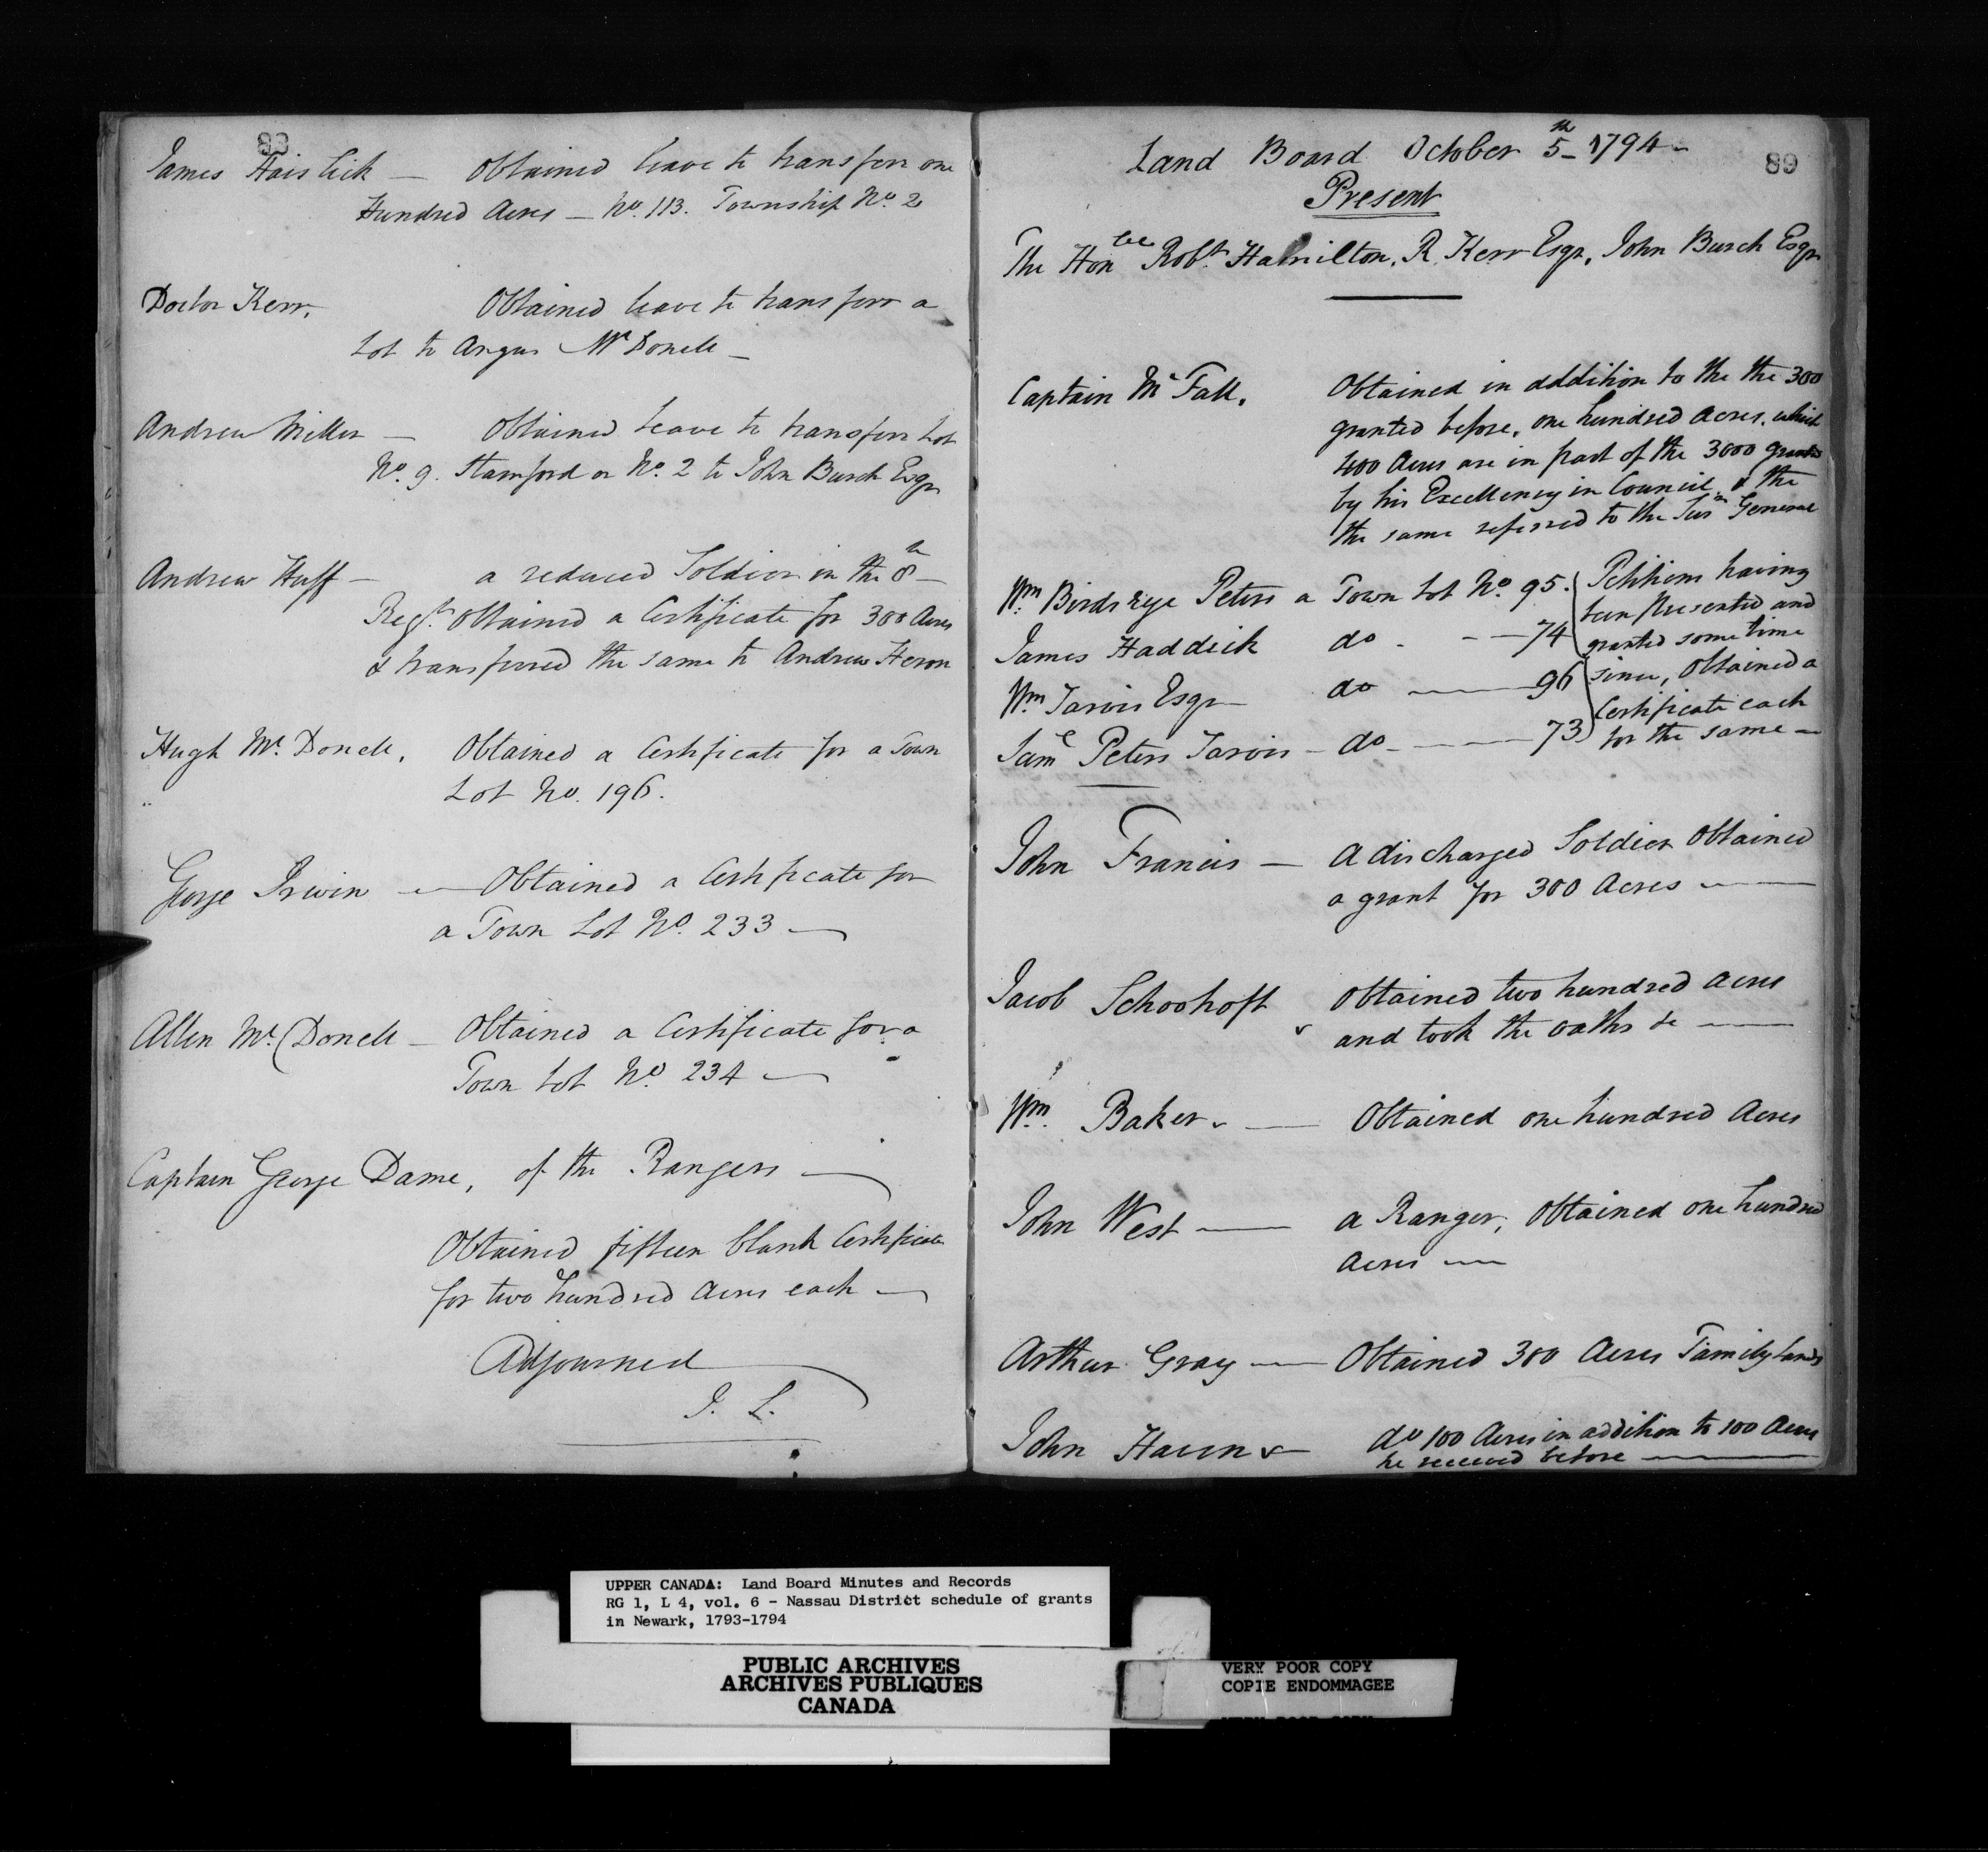 88
James Haislick — Obtained leave to transferr one
Hundred Acres — No. 113. Township No. 2
Doctor Kerr, Obtained leave to transferr a
Lot to Angus McDonell —
Andrew Miller — Obtained leave to transferr Lot
No. 9. Stamford or No. 2 to John Burch Esqr
Andrew Huff — a reduced Soldier in the 8th —
Regt. Obtained a Certificate for 300 Acres
& transferred the same to Andrew Heron
Hugh Mc.Donell, Obtained a Certificate for a Town
Lot No. 196.
George Irwin — Obtained a Certificate for
a Town Lot No. 233 —
Allen Mc.Donell — Obtained a Certificate for a
Town Lot No. 234 —
Captain George Dame, of the Rangers —
Obtained fifteen blank Certificate
for two hundred Acres each —
Adjourned
J. L.
89
Land Board October 5th — 1794 —
Present
The Honble Robt. Hamilton, R. Kerr Esqr, John Burch Esqr
Captain Mc Fall, Obtained in addition to the the 300
granted before, one hundred Acres, which
400 Acres are in part of the 3000 granted
by his Excellency in Council, & the
the same referred to the Surr General
Wm. Birdseye Peters a Town Lot No. 95. Petitions having
been presented and
James Haddick do - - - 74 granted some time
since, Obtained a
Wm. Jarvis Esqr do — 96 Certificate each
Saml Peters Jarvis — do — 73 for the same —
John Francis — A discharged Soldier Obtained
a grant for 300 Acres —
Jacob Schoohoft Obtained two hundred Acres
and took the oaths &c —
Wm. Baker — Obtained one hundred Acres
John West — a Ranger, Obtained one hundred
Acres —
Arthur Gray — Obtained 300 Acres Family Lands
John Haun do 100 Acres in addition to 100 Acres
he received before —
UPPER CANADA: Land Board Minutes and Records
RG 1, L 4, vol. 6 - Nassau District schedule of grants
in Newark, 1793-1794
PUBLIC ARCHIVES
ARCHIVES PUBLIQUES
CANADA
VERY POOR COPY
COPIE ENDOMMAGEE
VERY POOR COPY